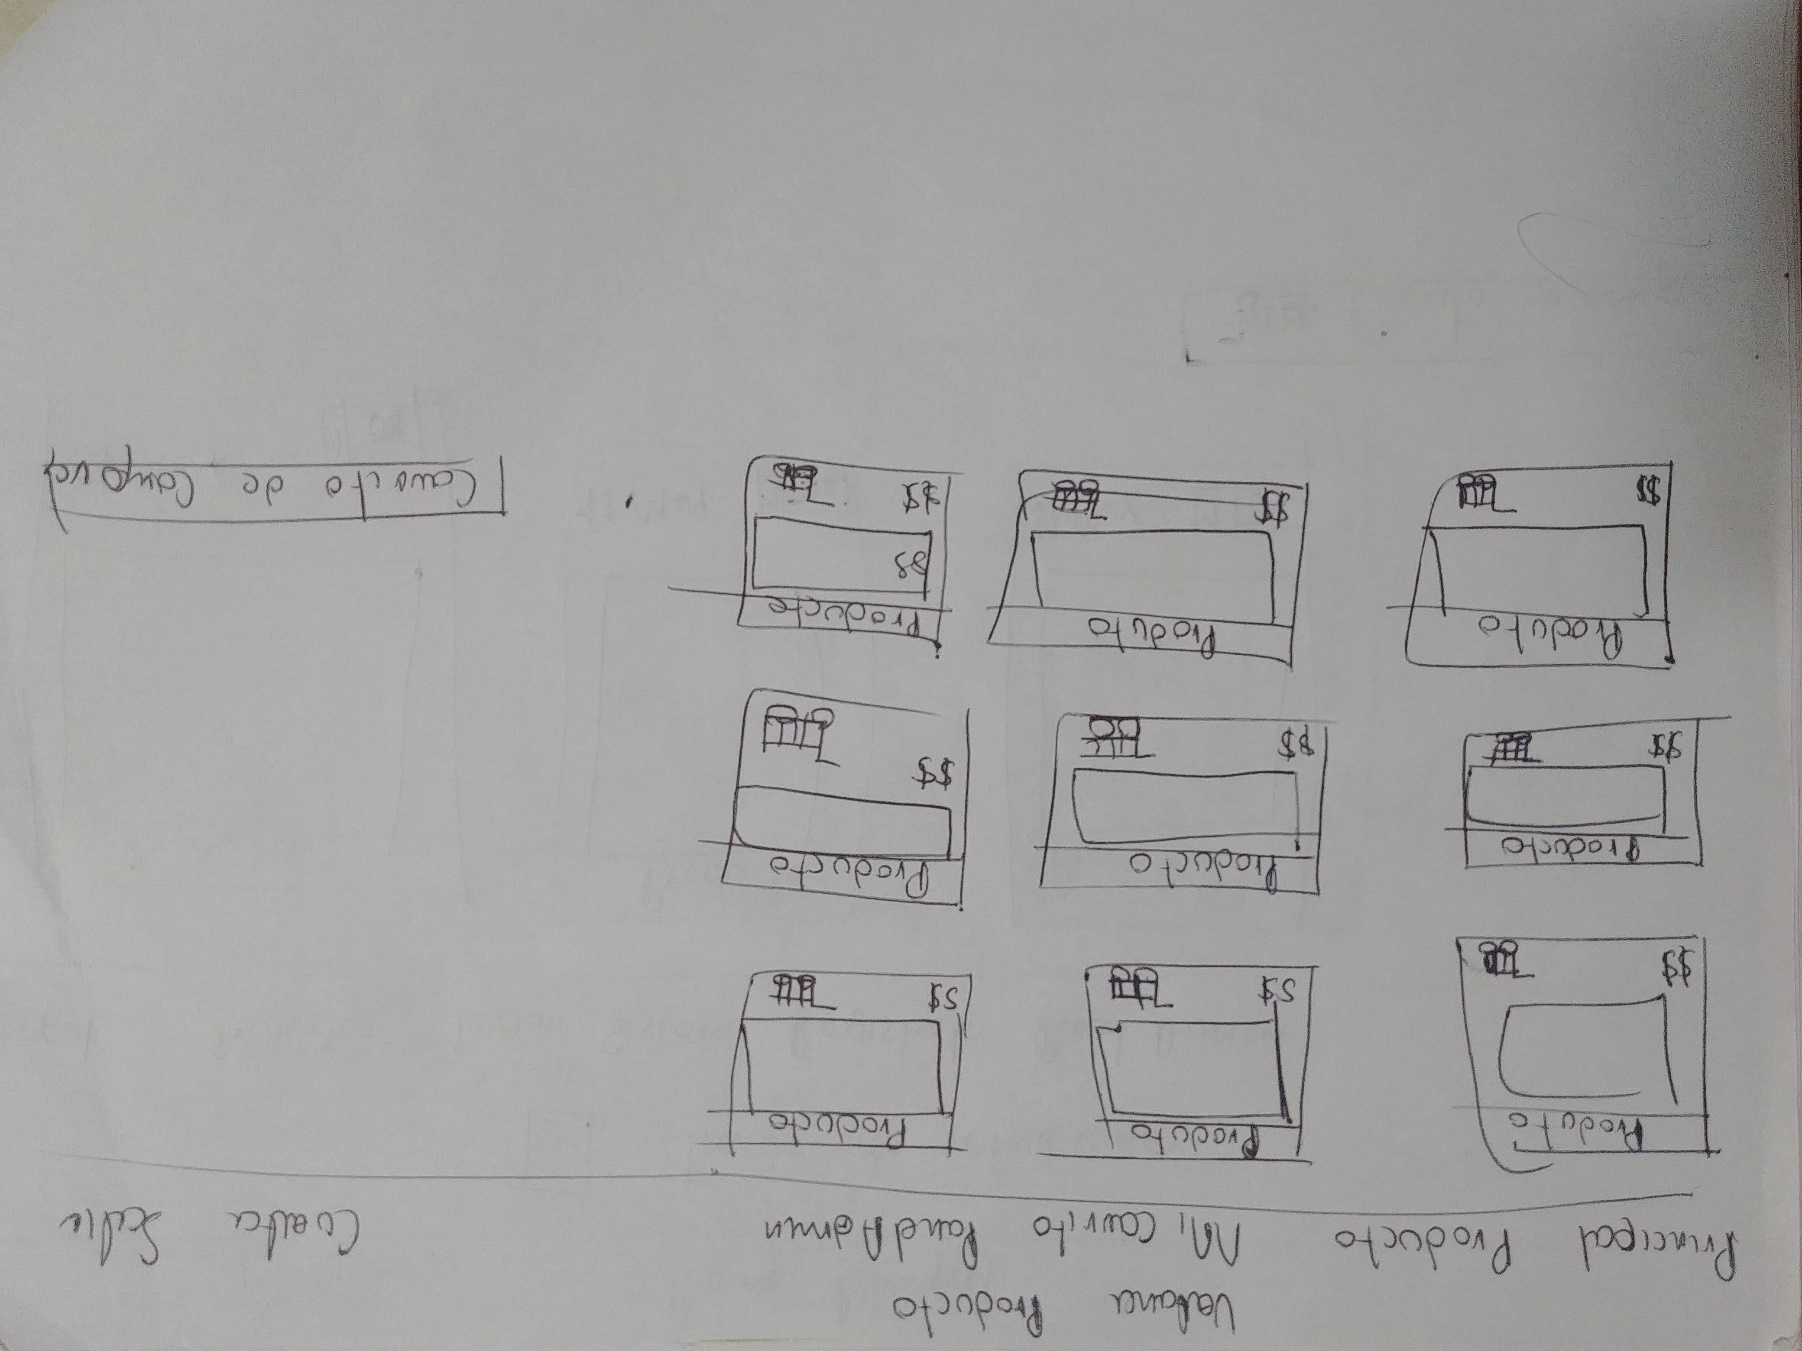 Ventana Producto
Principal Producto Mi Carrito Panel Admin Cuenta Salir
Produto Produto Producto
$$ S$ S$
Producto Producto Producto
$$ $$ $$
Produto Produto Producto
$$
$$ $$ $$
Carrito de Compras